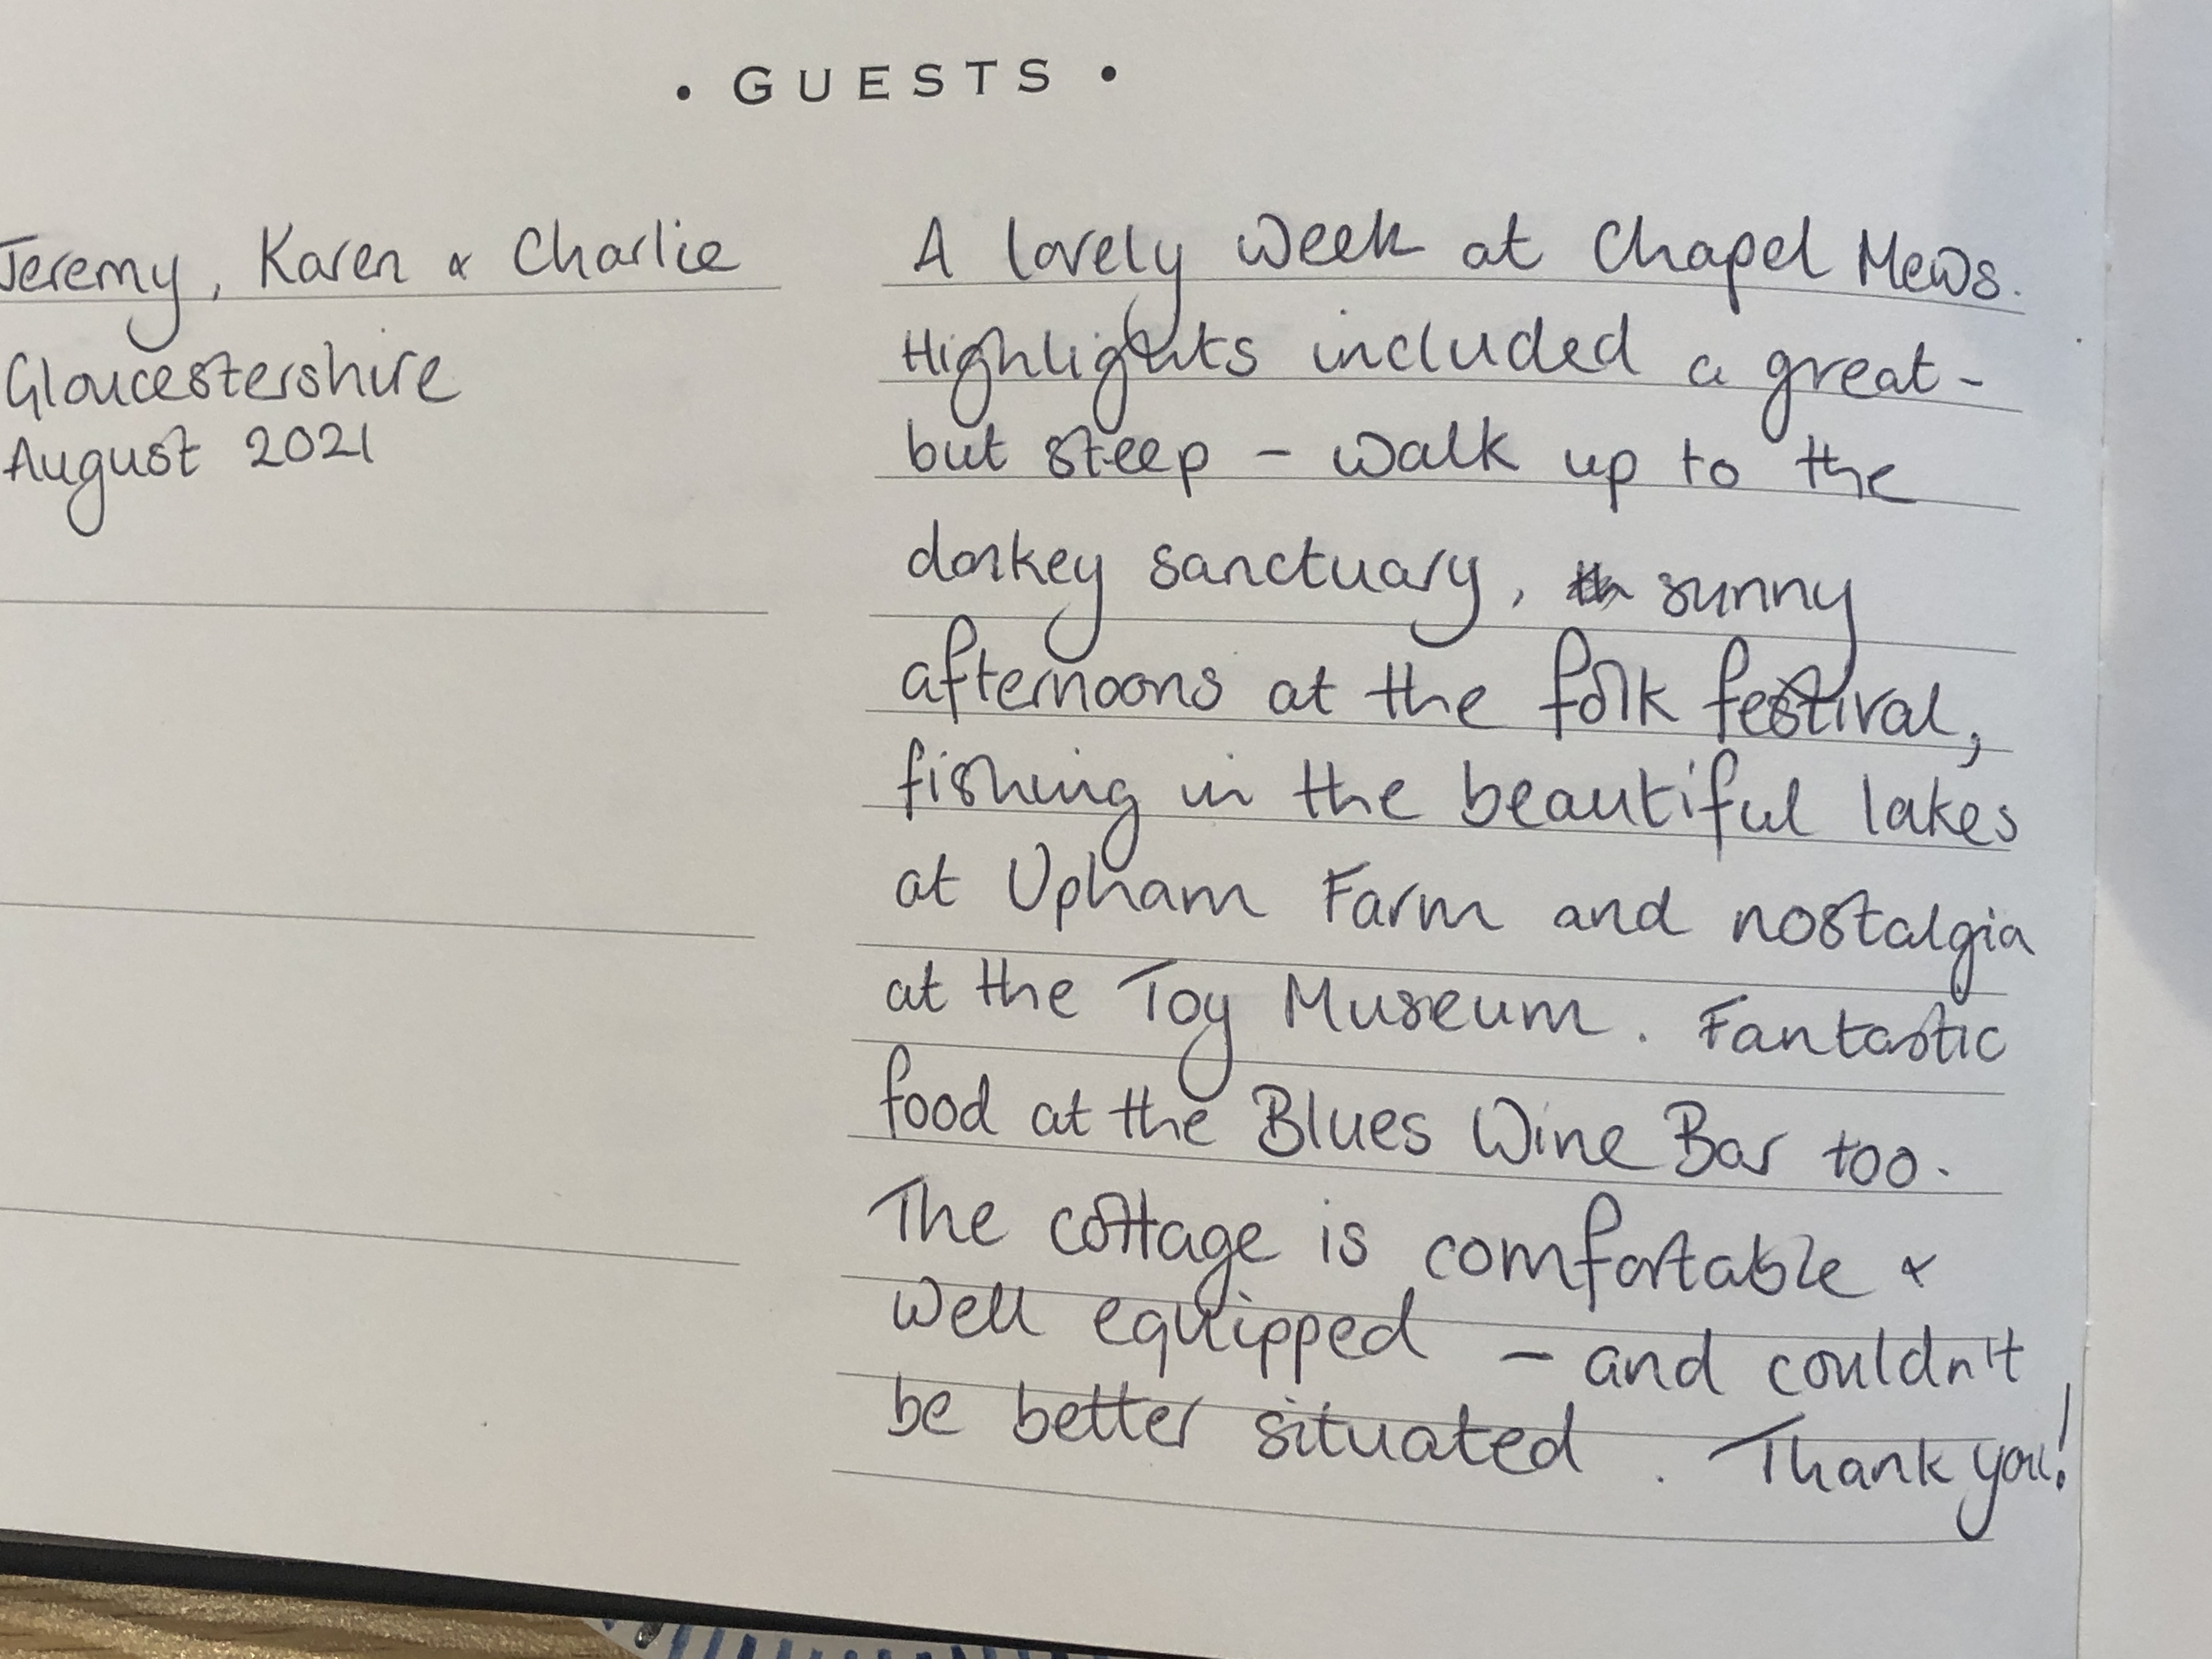 • GUESTS •
Jeremy, Karen & Charlie
Gloucestershire
August 2021
A lovely week at Chapel Mews.
Highlights included a great -
but steep - walk up to the
donkey sanctuary, sunny
afternoons at the folk festival,
fishing in the beautiful lakes
at Upham Farm and nostalgia
at the Toy Museum. Fantastic
food at the Blues Wine Bar too.
The cottage is comfortable &
well equipped - and couldn't
be better situated. Thank you!